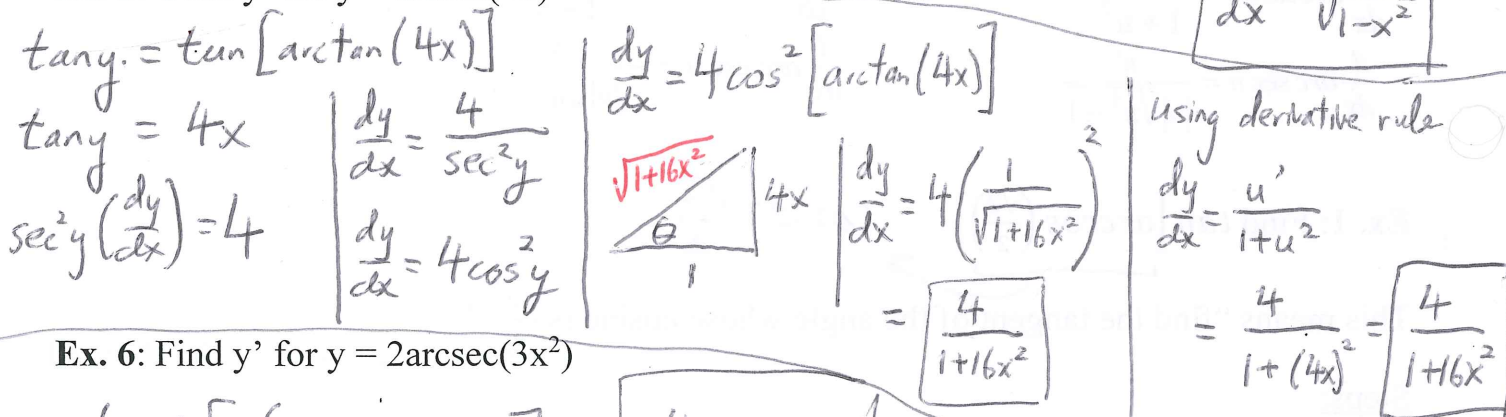 dx √1-x²
tany = tan[arctan(4x)]
tany = 4x
sec²y(dy/dx) = 4
dy/dx = 4/sec²y
dy/dx = 4cos²y
dy/dx = 4cos²[arctan(4x)]
√1+16x²
4x
θ
1
dy/dx = 4(1/√1+16x²)²
= 4/1+16x²
using derivative rule
dy/dx = u'/1+u²
= 4/1+(4x)² = 4/1+16x²
Ex. 6: Find y’ for y = 2arcsec(3x²)